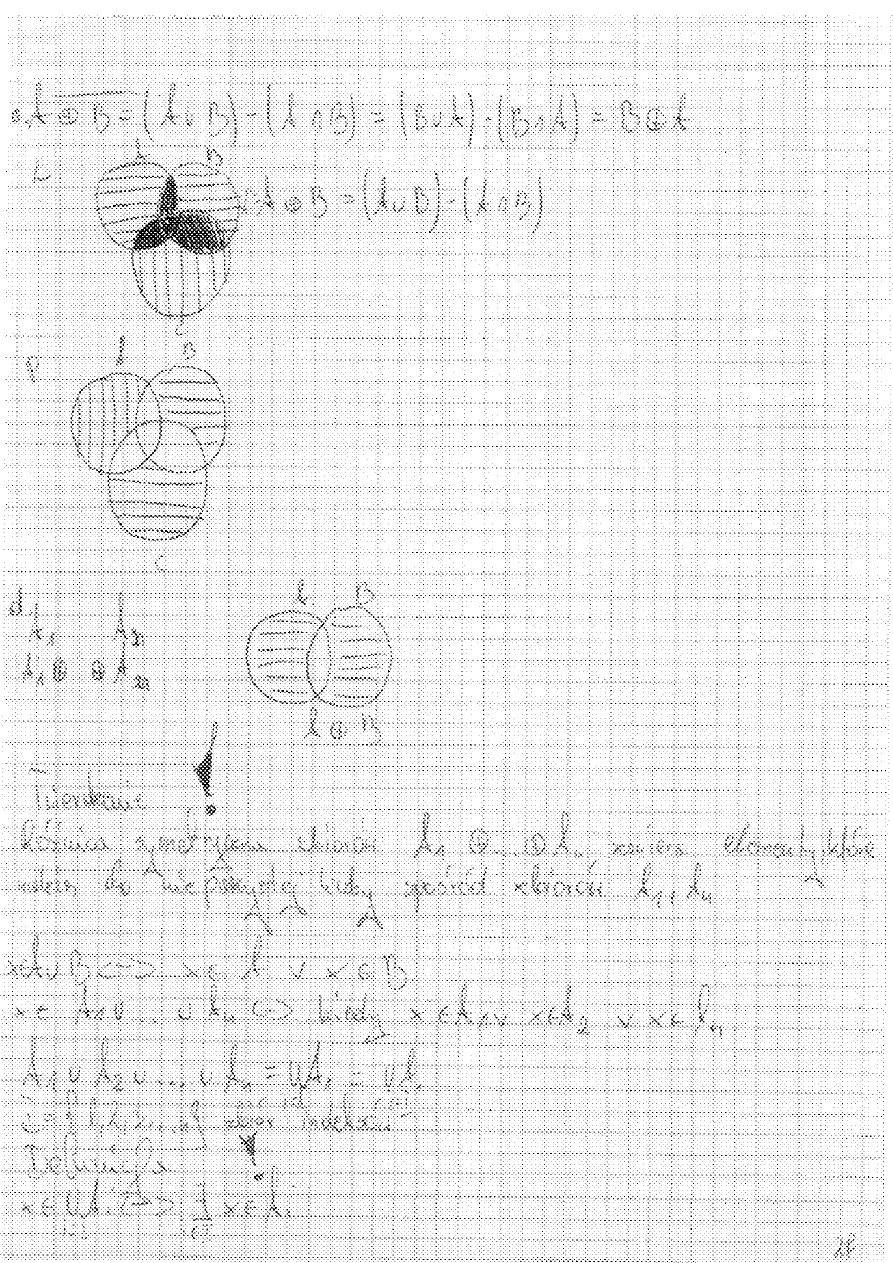 A ⊕ B = (A ∪ B) - (A ∩ B) = (B ∪ A) - (B ∩ A) = B ⊕ A
L
A B
A ⊕ B = (A ∪ B) - (A ∩ B)
C
P
A B
C
d)
A B
A₁ ⊕ ⊕
A ⊕ B
Twierdzenie
Różnica symetryczna zbiorów A₁ ⊕ ... ⊕ Aₙ zawiera elementy, które
należą do nieparzystej liczby spośród zbiorów A₁, Aₙ
x ∈ A ∪ B <=> x ∈ A ∨ x ∈ B
x ∈ A₁ ∪ ... ∪ Aₙ <=> kiedy x ∈ A₁ ∨ x ∈ A₂ ∨ x ∈ Aₙ
A₁ ∪ A₂ ∪ ... ∪ Aₙ = ∪Aᵢ = ∪Aᵢ
zbiór indeksów
Definicja
x ∈ ∪Aᵢ <=> ∃ x ∈ Aᵢ